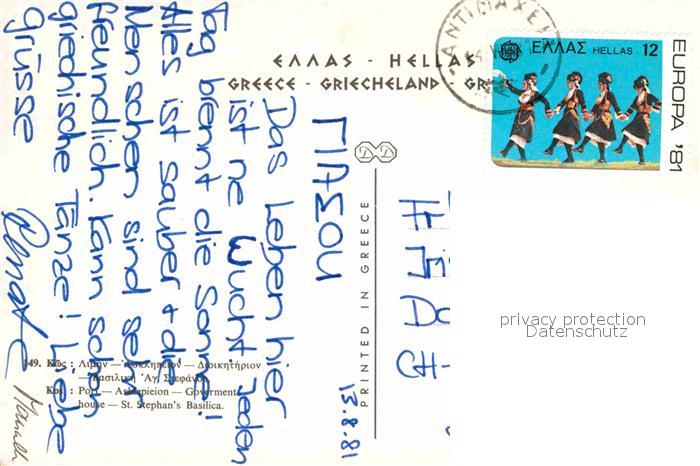 ΑΝΤΙΜΑΧΕΙ
ΕΛΛΑΣ HELLAS 12
EUROPA '81
ΕΛΛΑΣ - HELLAS
GREECE - GRIECHELAND - GR
PRINTED IN GREECE
13.8.81
ΓΙΑΣΟΥ
Das Leben hier
ist ne Wucht. Jeden
Tag brennt die Sonne!
Alles ist sauber + die
Menschen sind sehr
freundlich. Kann schon
griechische Tänze! Liebe
Grüsse
Renate
149. Κῶς : Λιμὴν — Ἀσκληπιεῖον — Διοικητήριον
— Βασιλικὴ Ἁγ. Στεφάνου.
Kos : Port — Asklipieion — Goverment
house — St. Stephan's Basilica.
privacy protection
Datenschutz